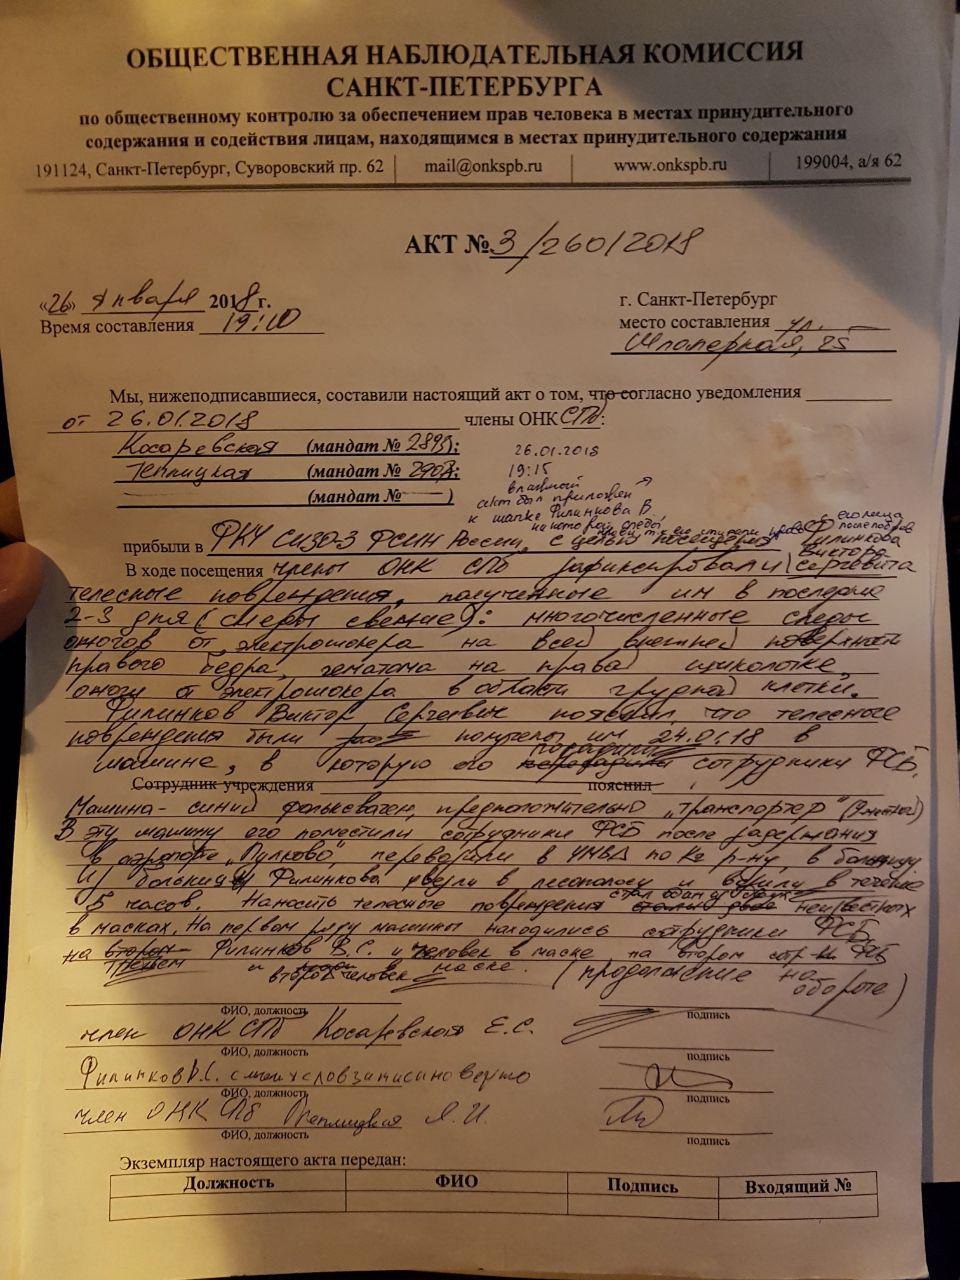 ОБЩЕСТВЕННАЯ НАБЛЮДАТЕЛЬНАЯ КОМИССИЯ
САНКТ-ПЕТЕРБУРГА
по общественному контролю за обеспечением прав человека в местах принудительного
содержания и содействия лицам, находящимся в местах принудительного содержания
191124, Санкт-Петербург, Суворовский пр. 62 mail@onkspb.ru www.onkspb.ru 199004, а/я 62
АКТ № 3/260/2018
«26» января 2018 г.
Время составления 19:10
г. Санкт-Петербург
место составления ул.
Шпалерная, 25
Мы, нижеподписавшиеся, составили настоящий акт о том, что согласно уведомления
от 26.01.2018 члены ОНК СПб:
Косаревская (мандат №
Теплицкая (мандат №
(мандат № )
26.01.2018
19:15
влажный
акт был приложен
к шапке Филинкова В.
на которой следы
прибыли в ФКУ СИЗО-3 ФСИН России, с целью посещения Филинкова
Виктора
В ходе посещения члены ОНК СПб зафиксировали Сергеевича
телесные повреждения, полученные им в последние
2-3 дня (следы свежие): многочисленные следы
ожогов от электрошокера на всей внешней поверхности
правого бедра, гематома на правой щиколотке,
ожоги от электрошокера в области грудной клетки.
Филинков Виктор Сергеевич пояснил, что телесные
повреждения были получены им 24.01.18 в
машине, в которую его посадили сотрудники ФСБ.
Сотрудник учреждения пояснил
Машина - синий фольксваген, предположительно "Транспортер"
В эту машину его поместили сотрудники ФСБ после задержания
в аэропорте "Пулково", перевозили в УМВД по Кг р-ну, в больницу.
Из больницы Филинкова увезли в лесополосу и возили в течение
5 часов. Наносить телесные повреждения стал один из двух неизвестных
в масках. На первом ряду машины находились сотрудники ФСБ,
на втором Филинков В.С. и человек в маске на втором
третьем и второй человек в маске. (продолжение на
обороте)
ФИО, должность подпись
член ОНК СПб Косаревская Е.С.
ФИО, должность подпись
Филинков В.С. с моих слов записано верно
ФИО, должность подпись
член ОНК СПб Теплицкая Я.И.
ФИО, должность подпись
Экземпляр настоящего акта передан:
Должность ФИО Подпись Входящий №